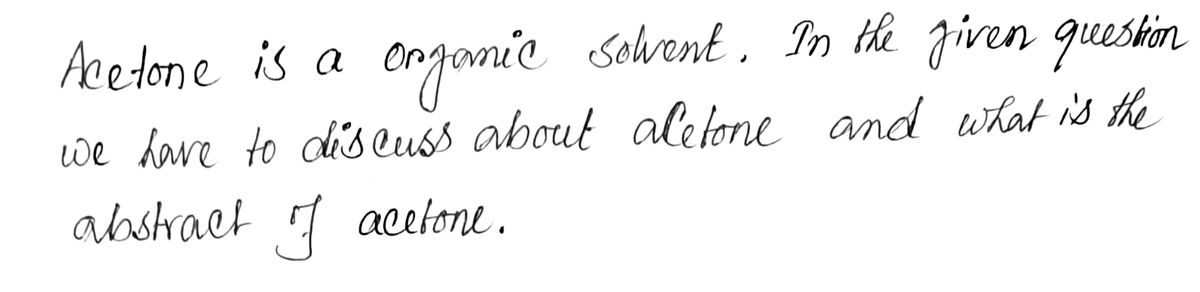 Acetone is a organic solvent. In the given question
we have to discuss about acetone and what is the
abstract of acetone.